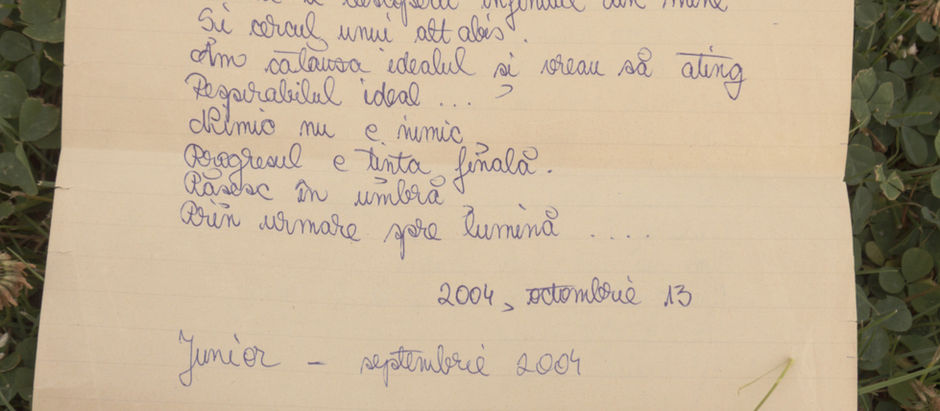 descoperi infinitul din mine
Și cercul unui alt abis.
Am călăuza idealul și vreau să ating
Respirabilul ideal ...
Nimic nu e nimic
Progresul e ținta finală.
Pășesc în umbră
Prin urmare spre lumină ....
2004, octombrie 13
Junior - septembrie 2004